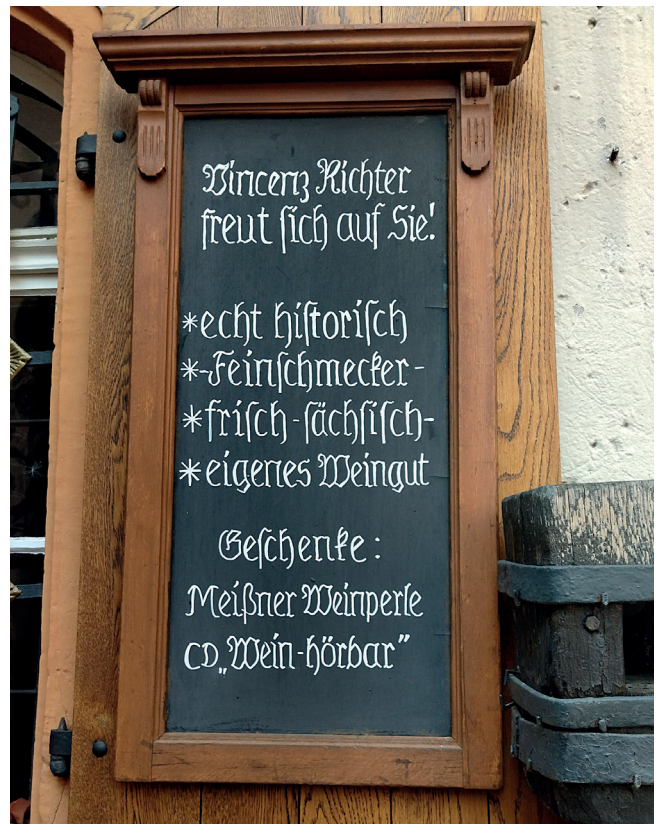 Vincenz Richter
freut sich auf Sie!
*echt historisch
*-Feinschmecker-
*frisch-sächsisch-
*eigenes Weingut
Geschenke:
Meißner Weinperle
CD„Wein-hörbar”